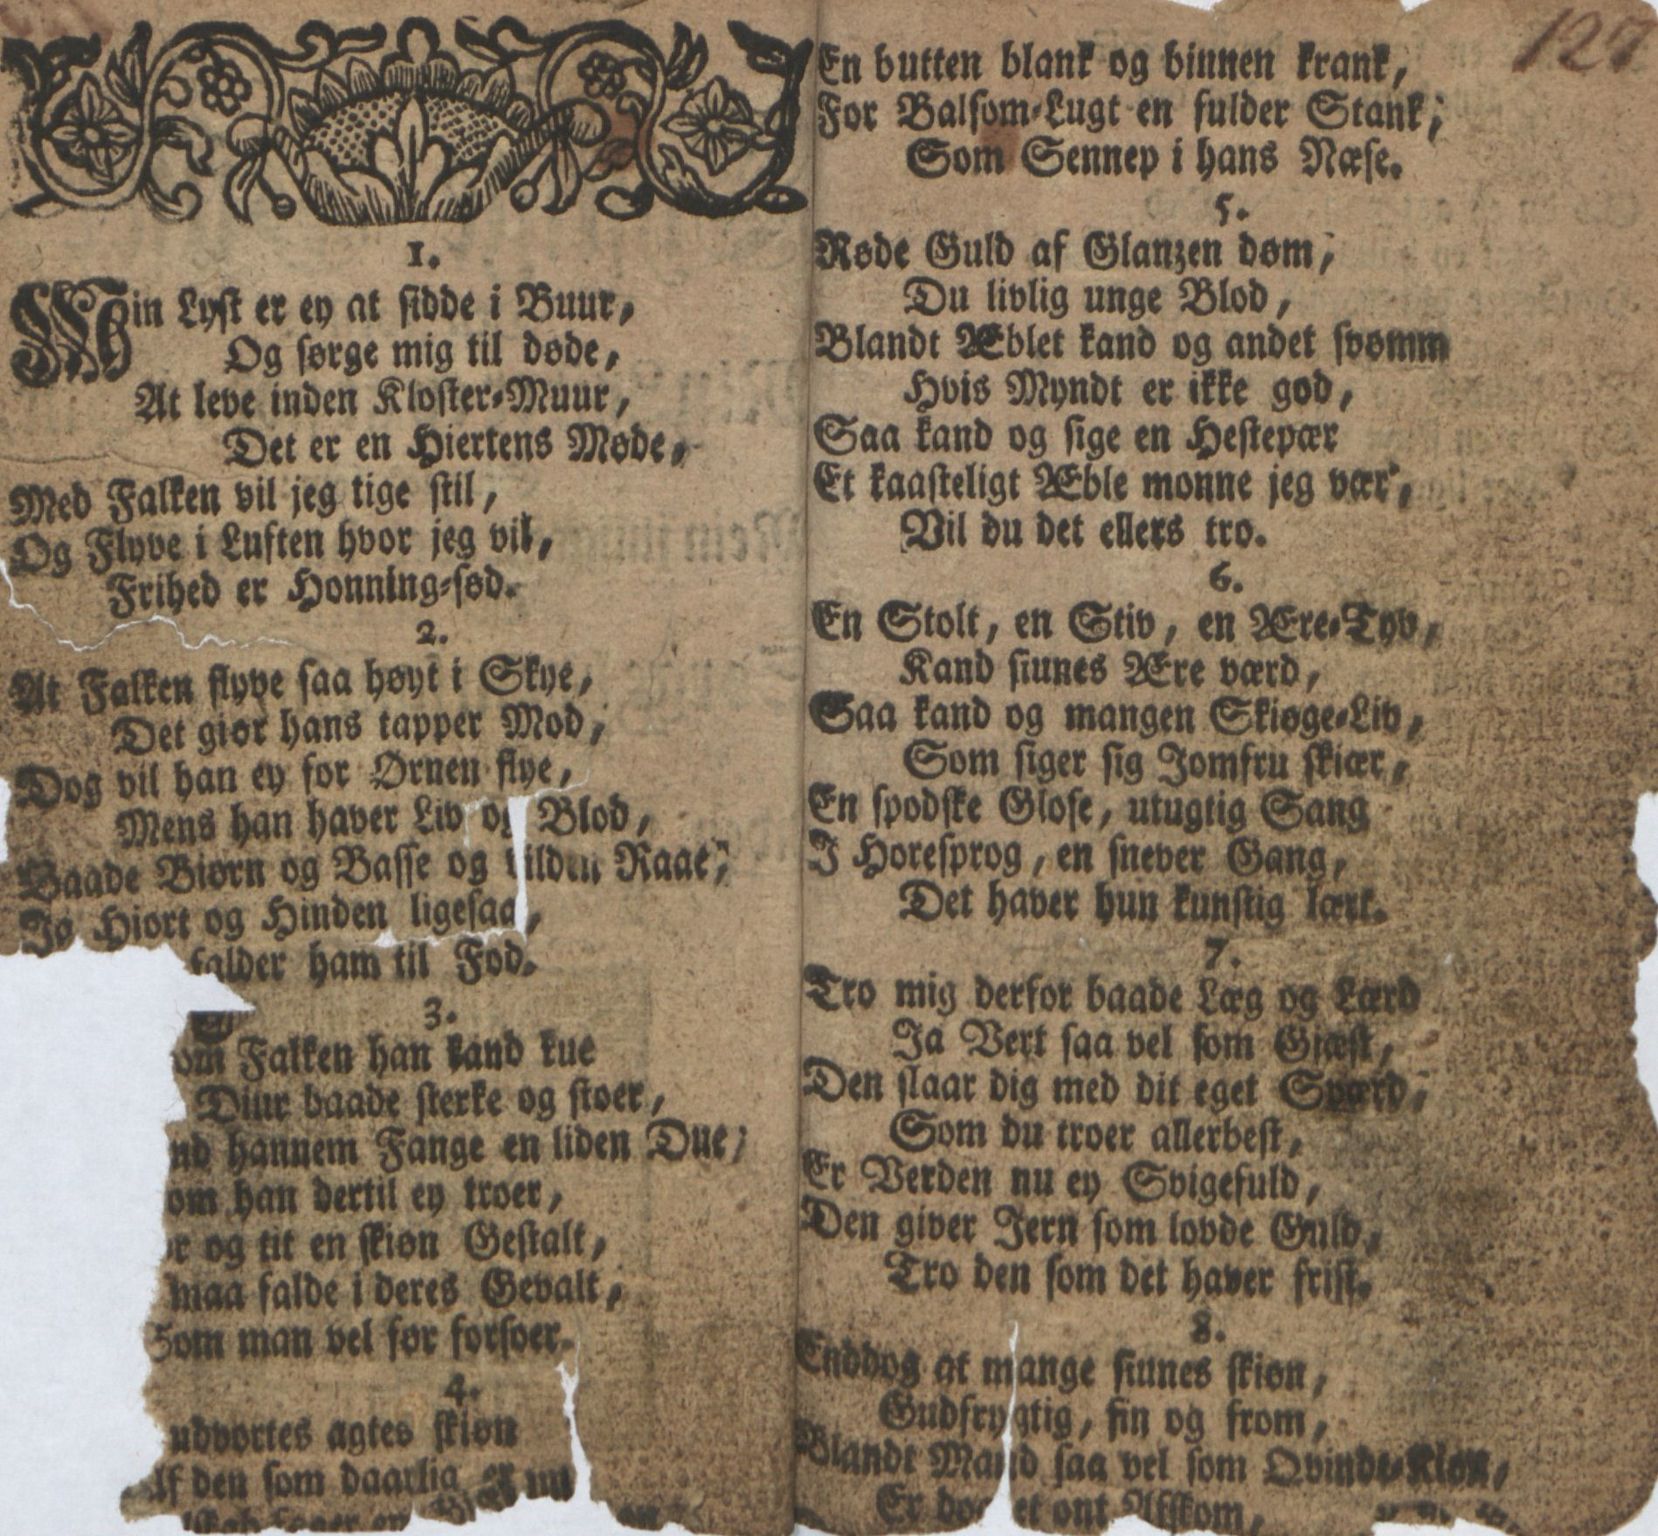 1.
Min Lyst er ey at sidde i Buur,
Og sørge mig til døde,
At leve inden Kloster-Muur,
Det er en Hiertens Møde,
Med Falken vil jeg tige stil,
Og Flyve i Luften hvor jeg vil,
Frihed er Honning-sød.
2.
At Falken flyve saa høyt i Skye,
Det giør hans tapper Mod,
Dog vil han ey for Ørnen flye,
Mens han haver Liv og Blod,
Baade Biørn og Basse og vilden Raae,
Ja Hiort og Hinden ligesaa,
falder ham til Fod.
3.
om Falken han kand kue
Diur baade sterke og stoer,
nd hannem Fange en liden Due,
om han dertil ey troer,
og tit en skiøn Gestalt,
maa falde i deres Gevalt,
Som man vel før forfoer.
4.
udvortes agtes skiøn
Af den som daarlig
127
En butten blank og binnen krank,
For Balsom-Lugt en fulder Stank,
Som Sennep i hans Næse.
5.
Røde Guld af Glanzen døm,
Du livlig unge Blod,
Blandt Æblet kand og andet svømm
Hvis Myndt er ikke god,
Saa kand og sige en Hestepær
Et kaasteligt Æble monne jeg vær',
Vil du det ellers tro.
6.
En Stolt, en Stiv, en Ære-Tyv,
Kand siunes Ære værd,
Saa kand og mangen Skiøge-Liv,
Som siger sig Jomfru skiær,
En spodske Glose, utugtig Sang
I Horesprog, en snever Gang,
Det haver hun kunstig lært.
7.
Tro mig derfor baade Læg og Lærd
Ja Vert saa vel som Giæst,
Den slaar dig med dit eget Sværd,
Som du troer allerbest,
Er Verden nu ey Svigefuld,
Den giver Jern som lovde Guld,
Tro den som det haver frist.
8.
Enddog at mange siunes skiøn,
Gudfrygtig, fin og from,
Blandt Mand saa vel som Qvinde-Kiøn,
Er dog et ont Afskom,